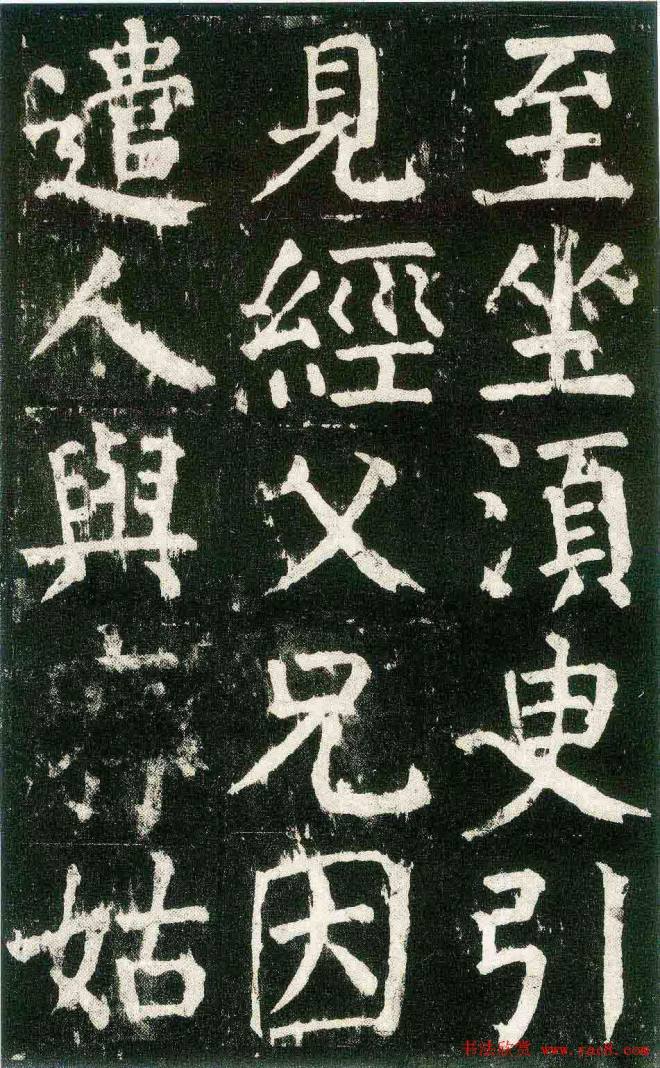 至坐湏臾引
見經父兄因
遣人與姑
书法欣赏 www.yac8.com